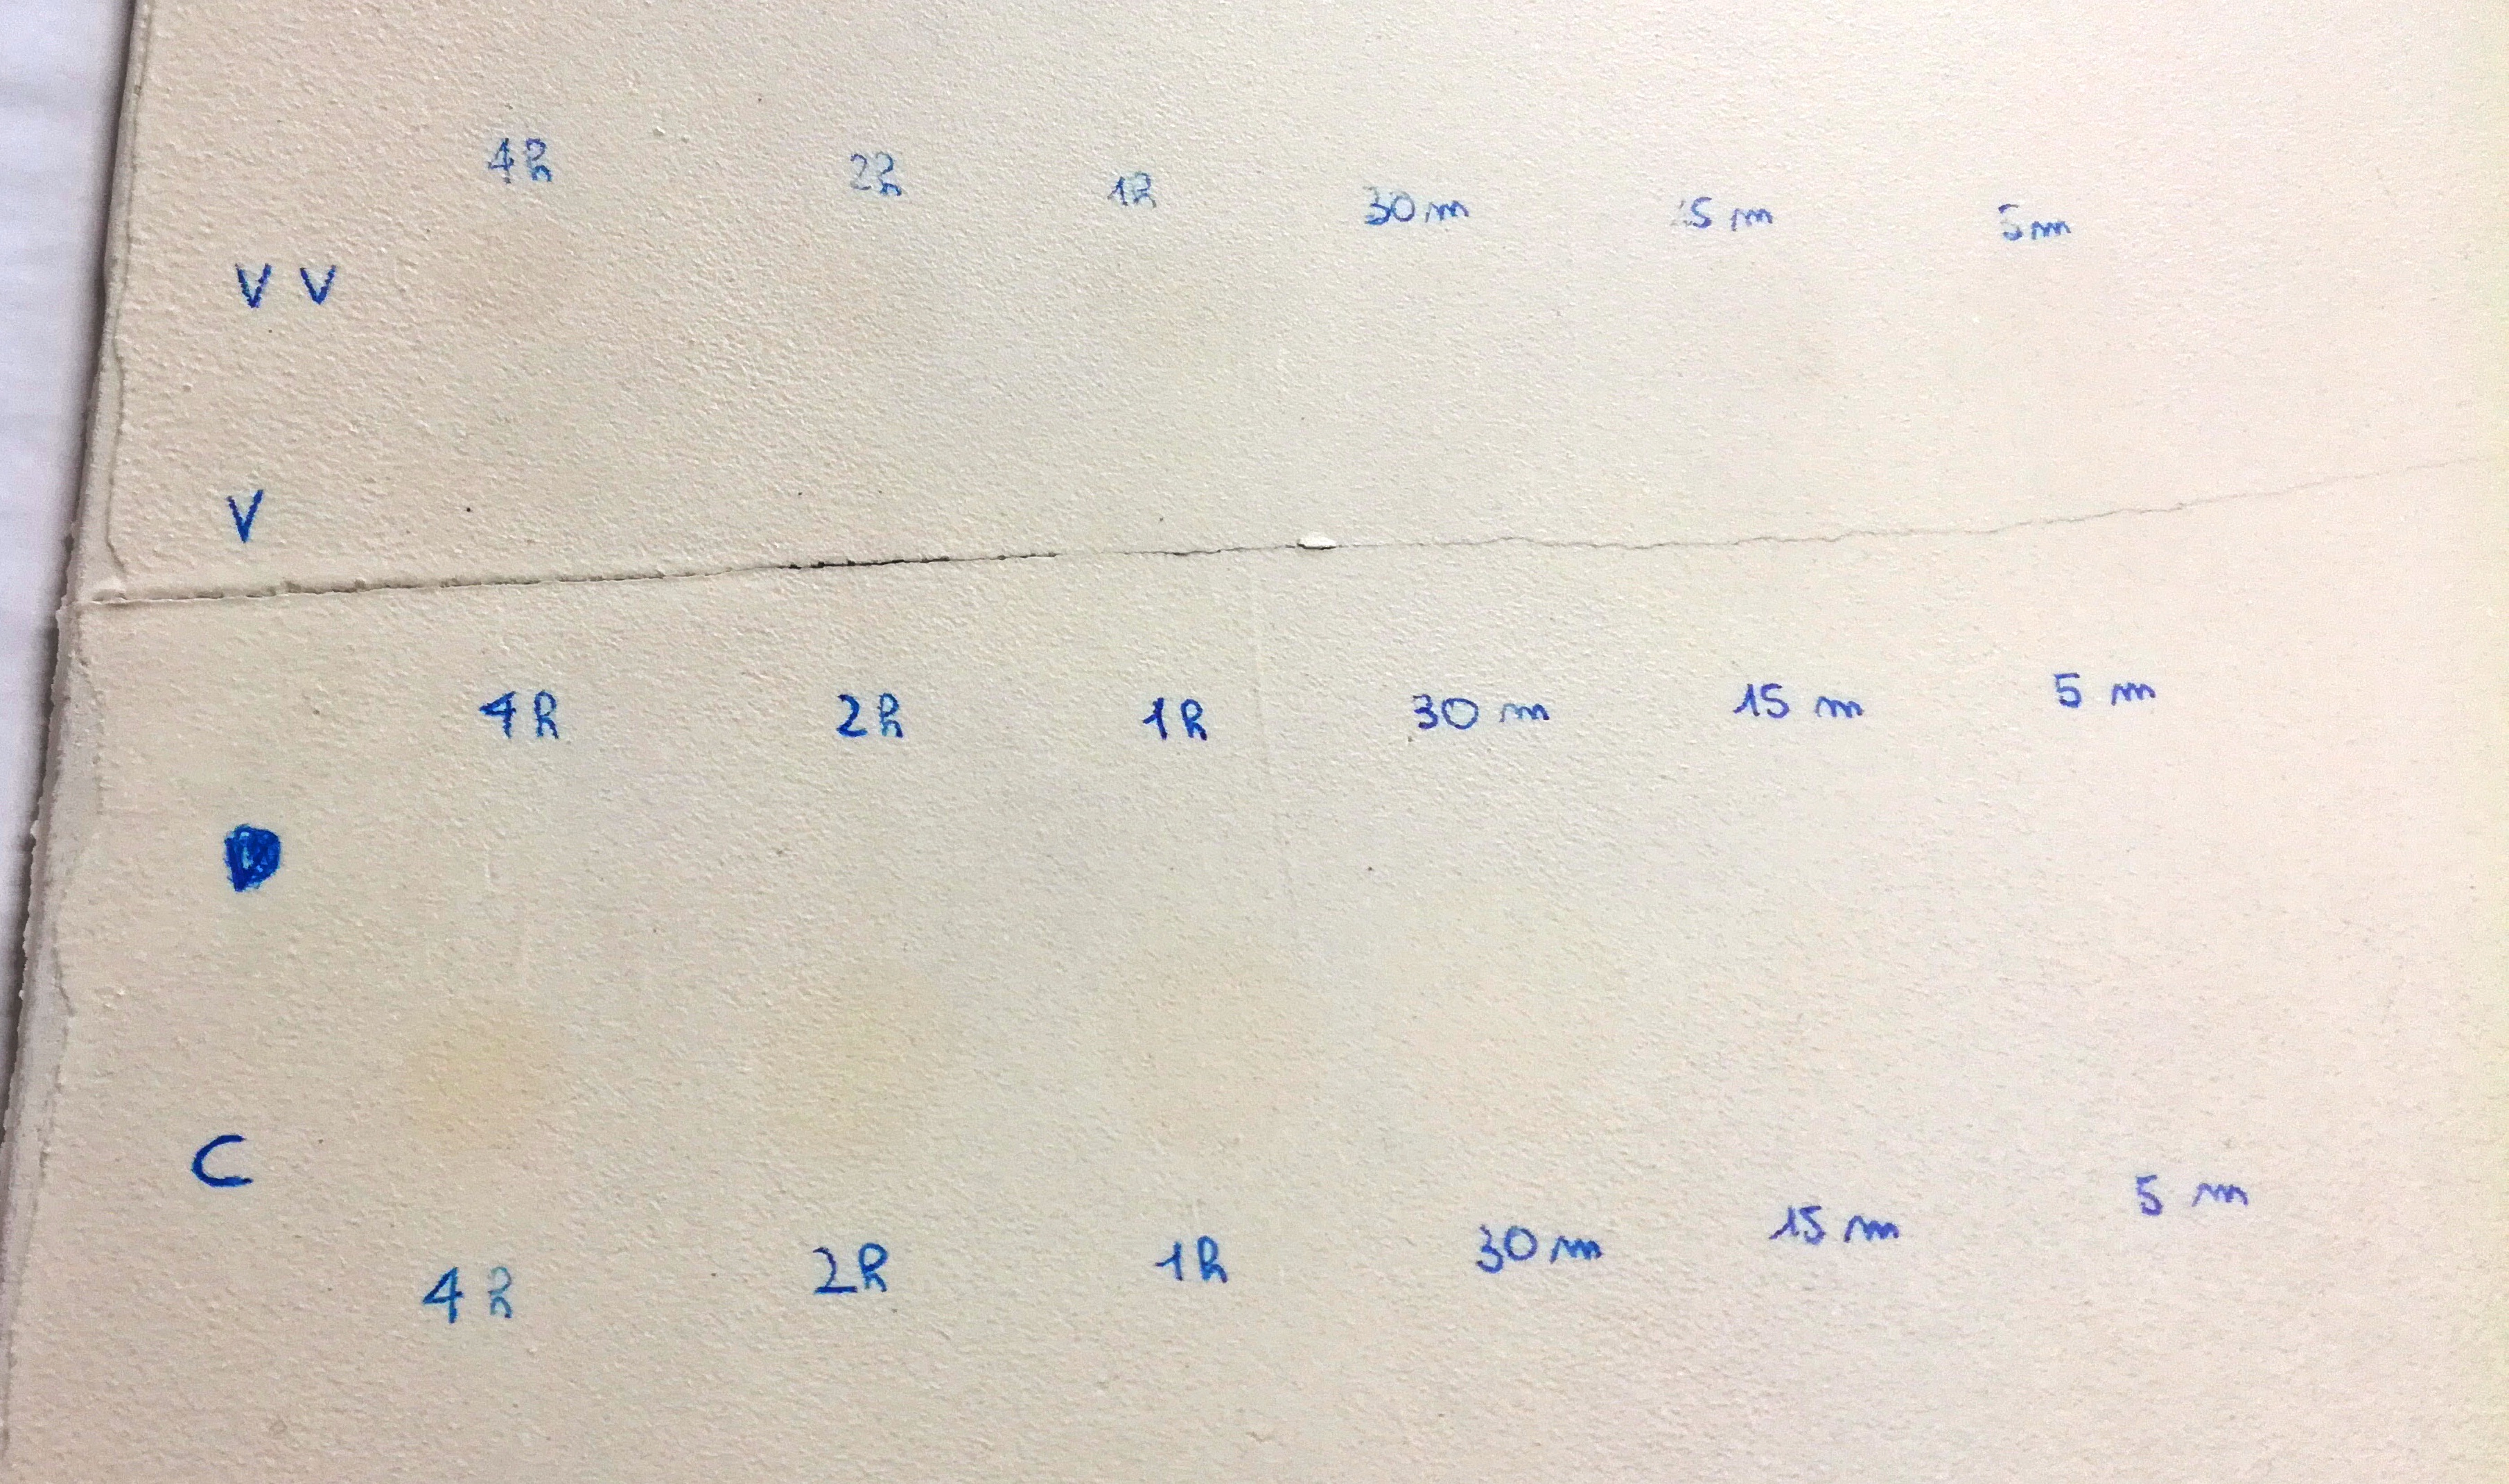 4h 2h 1h 30m 15m 5m
V V
V
4h 2h 1h 30 m 15 m 5 m
C
4 h 2h 1h 30 m 15 m 5 m